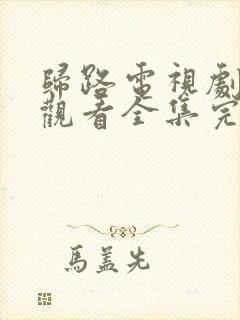 歸路電視劇
觀看全集完
馬蓋先